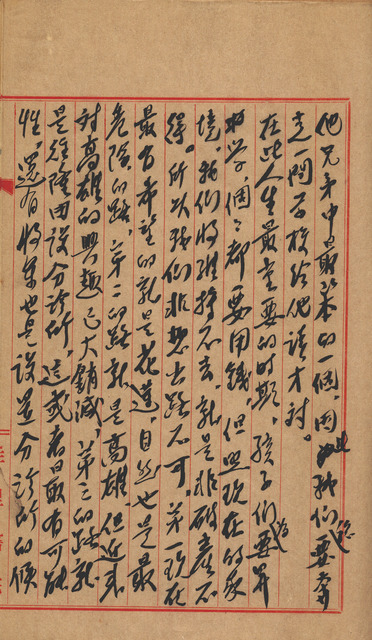 他兄弟中最笨的一個，因此我們要替
走一間學校給他讀才對。
在此人生最重要的時期，孩子們要昇
學，個個都要用錢，但照現在的
境，我們將維持不去，就是非破產不
得。所以我們非想出路不可，第一現在
最有希望的就是花蓮，自然也是最
危險的路，第二的路就是高雄但近來
對高雄的興趣已大銷減，第三的路就
是在隆田設分診所，這或者最有可能
性，還有將來也是設置分診所的候